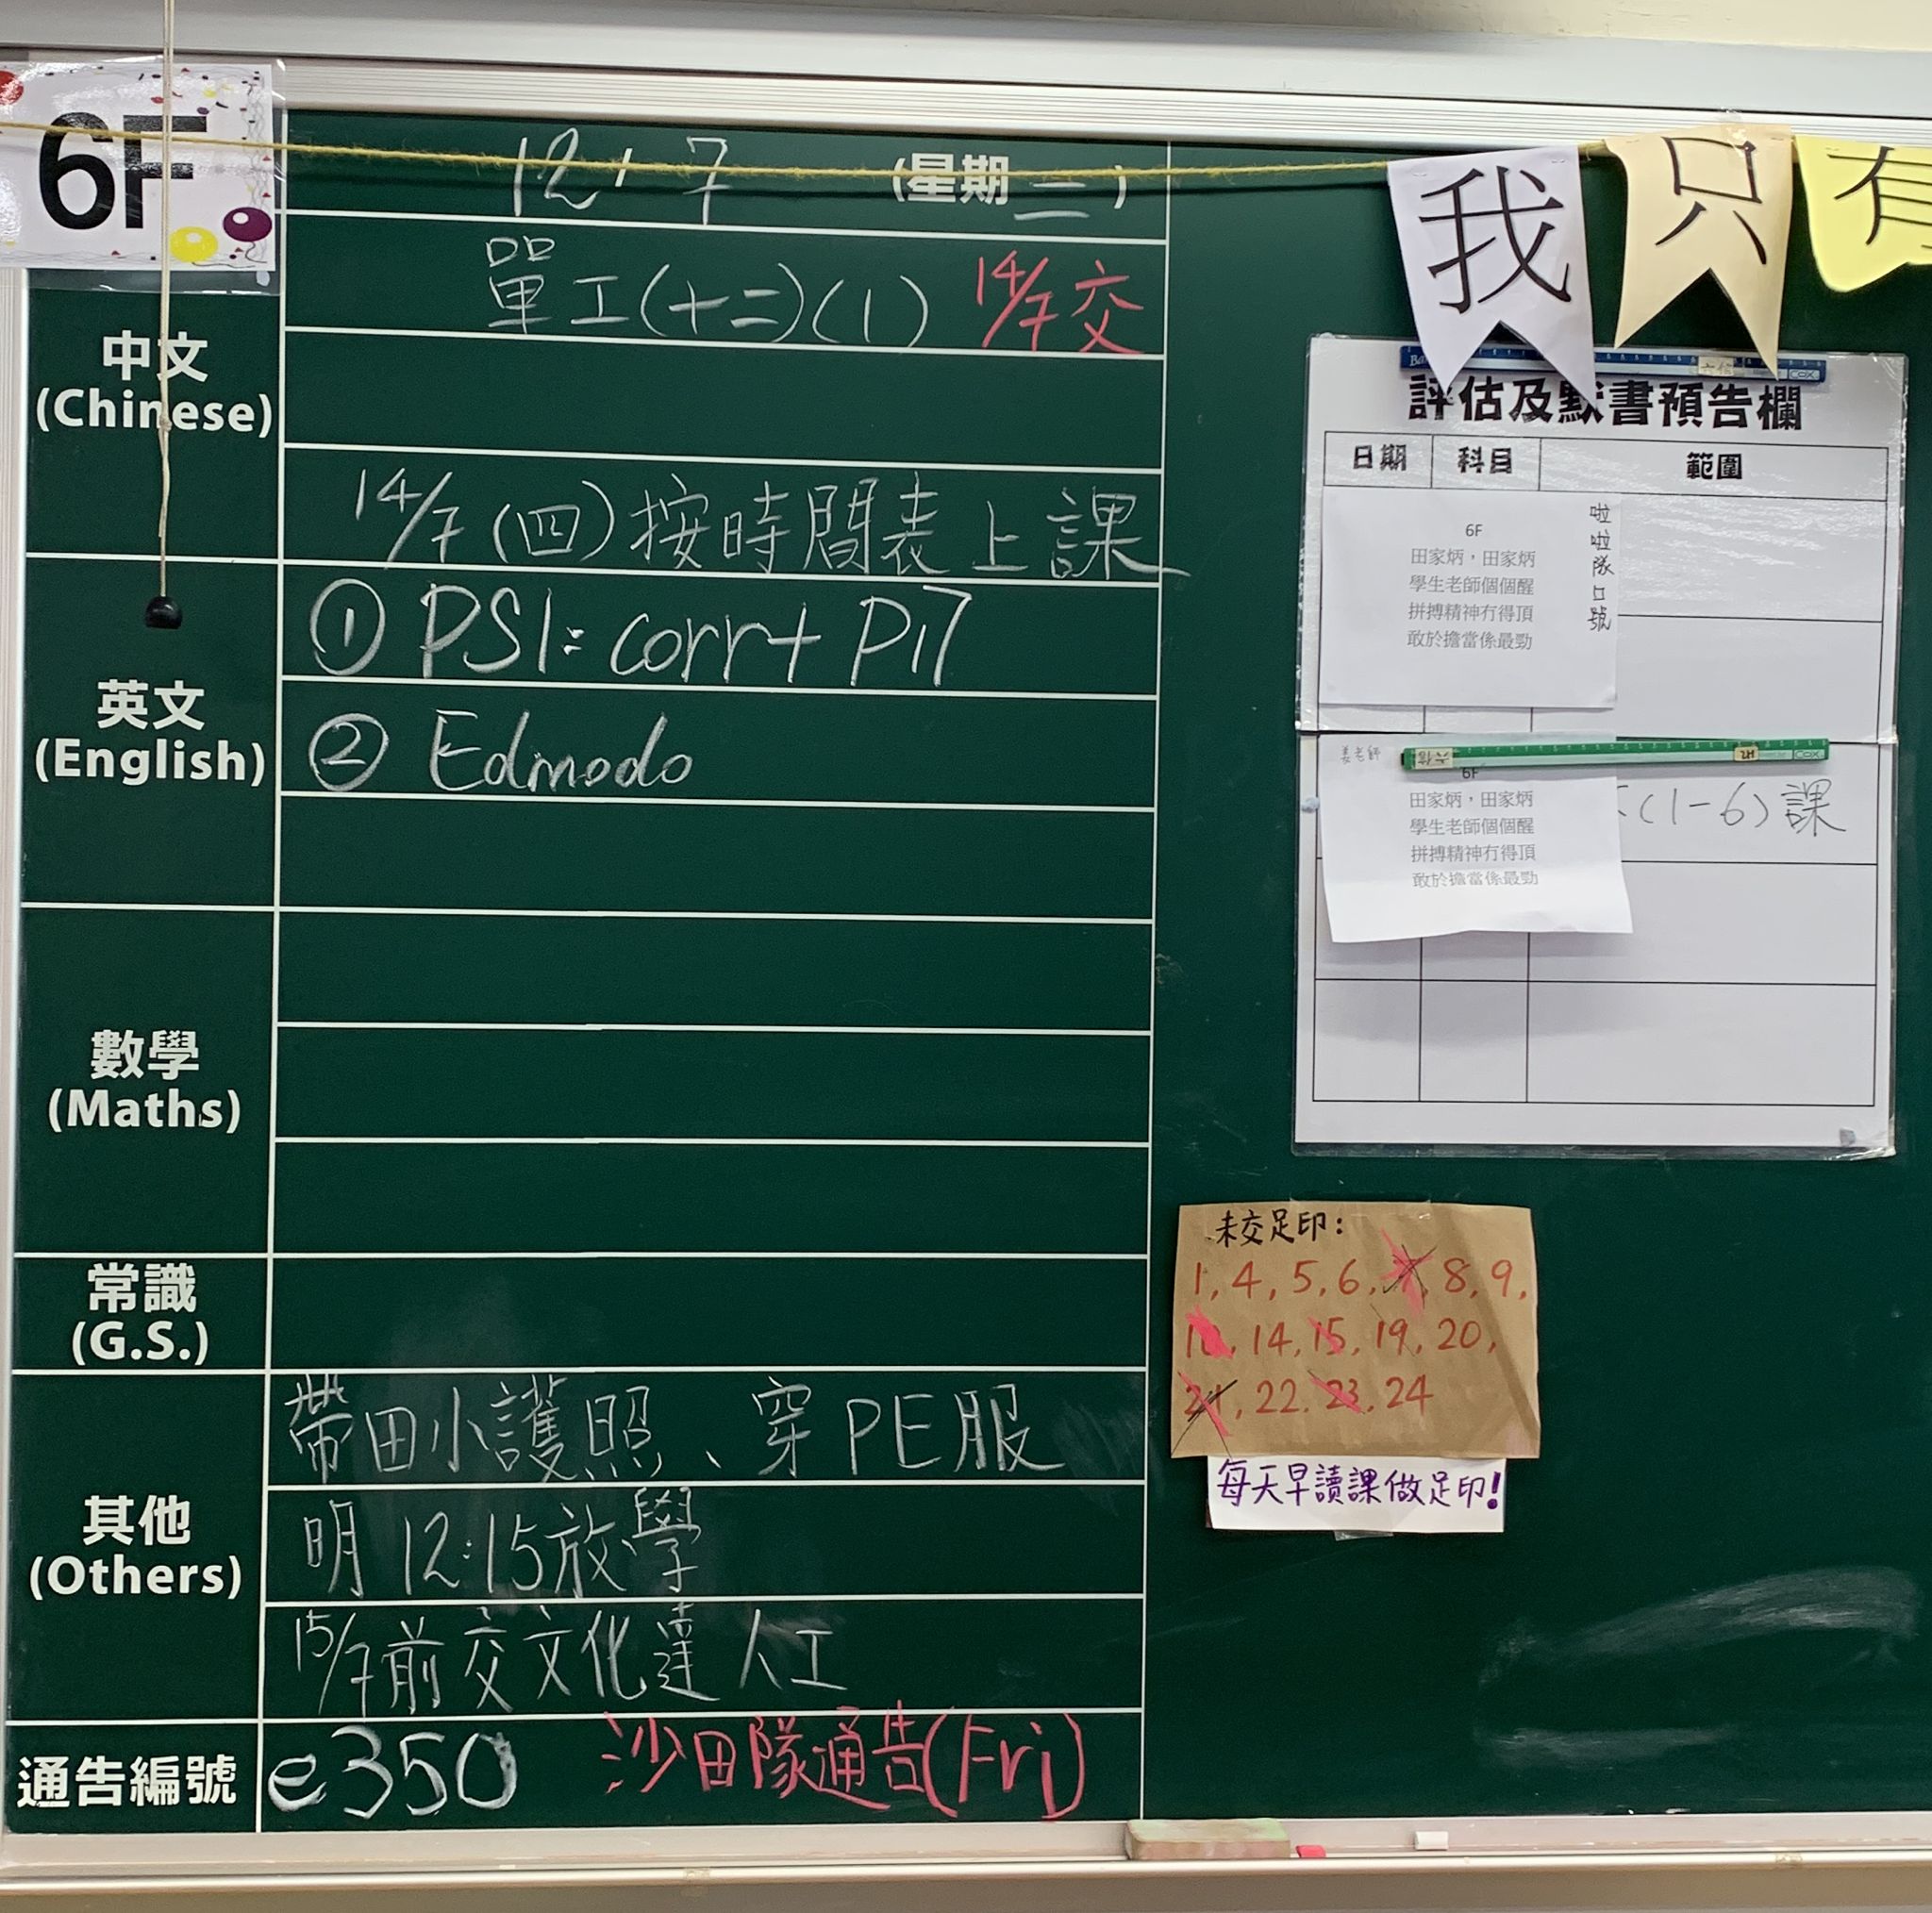 6F
12.7 (星期二)
中文
(Chinese)
單工(十二)(1) 14/7交
14/7(四)按時間表上課
英文
(English)
① PS1: corr+ P17
② Edmodo
數學
(Maths)
常識
(G.S.)
其他
(Others)
帶田小護照、穿PE服
明12:15放學
15/7前交文化達人工
通告編號
e350 沙田隊通告(Fri)
我只有
評估及默書預告欄
日期 科目 範圍
啦啦隊口號
6F
田家炳，田家炳
學生老師個個醒
拼搏精神冇得頂
敢於擔當係最勁
姜老師
6F
田家炳，田家炳
學生老師個個醒
拼搏精神冇得頂
敢於擔當係最勁
(1-6)課
未交足印:
1, 4, 5, 6, 7, 8, 9,
10, 14, 15, 19, 20,
21, 22, 23, 24
每天早讀課做足印!